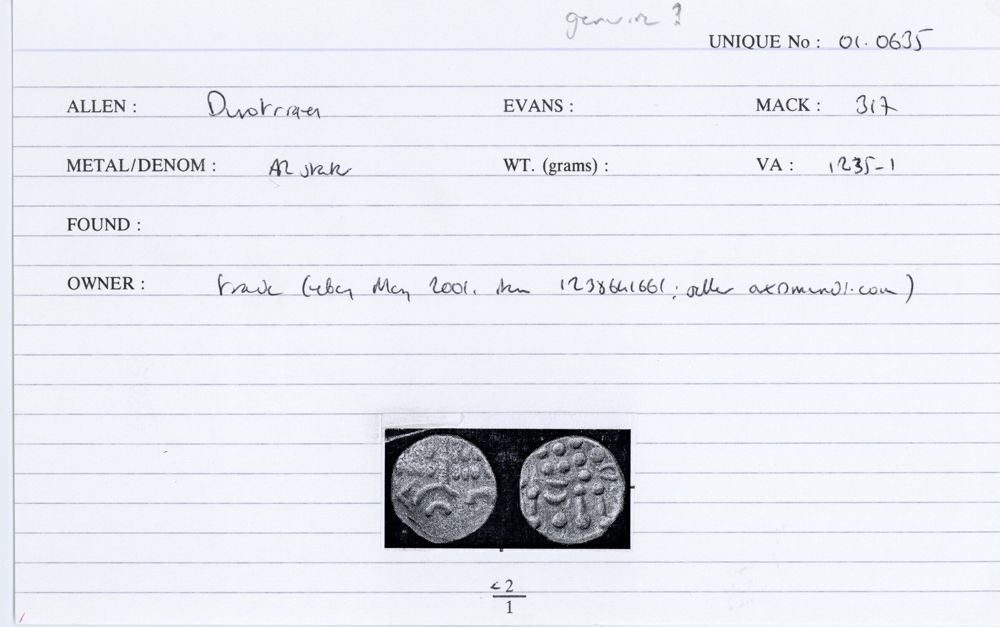 genuine?
UNIQUE No : 01.0635
ALLEN : Durotrigan EVANS : MACK : 317
METAL/DENOM : AR stater WT. (grams) : VA : 1235-1
FOUND :
OWNER : trade (ebay May 2001. item 1238641661; seller
2
1